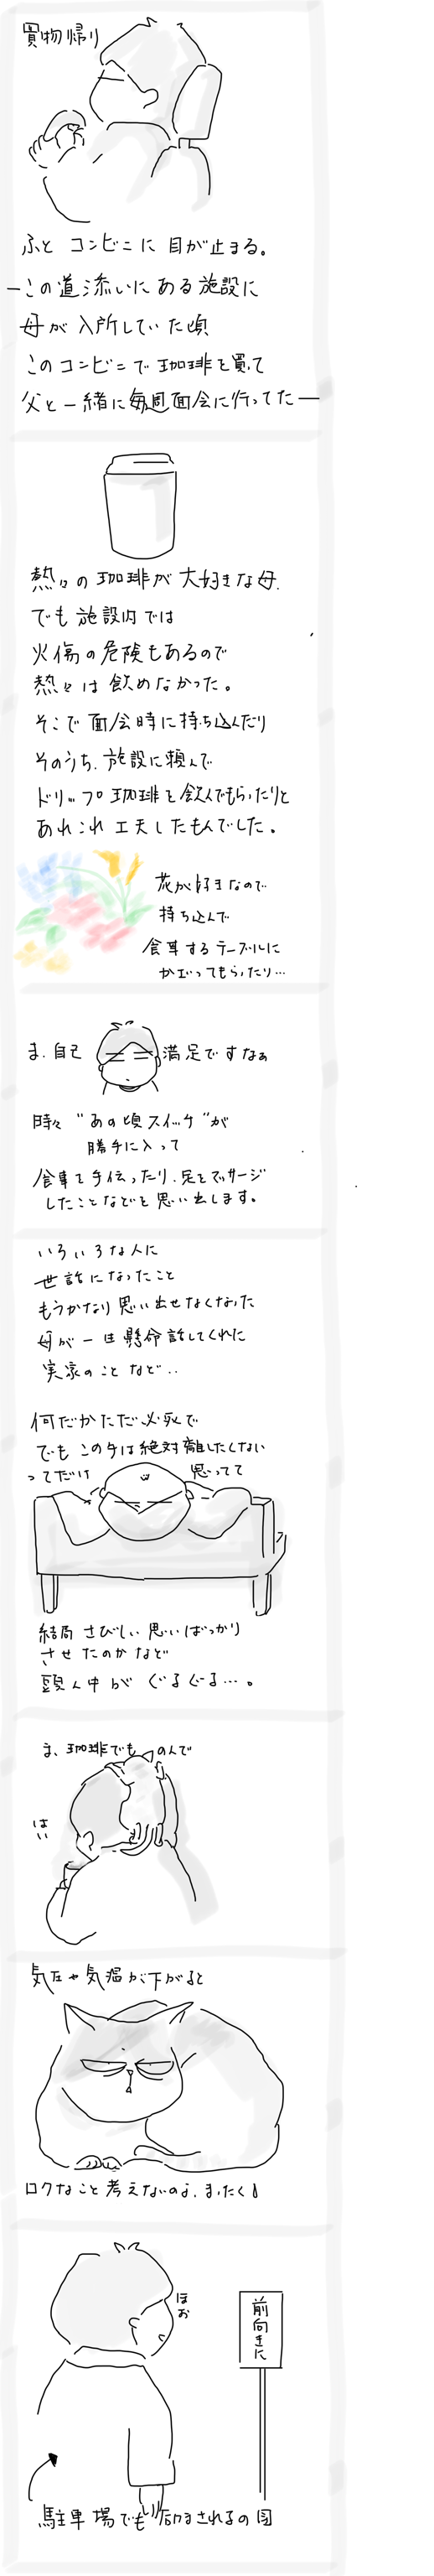 買物帰り
ふと コンビニに 目が止まる。
—この道添いに ある施設に
母が入所していた頃
このコンビニで珈琲を買って
父と一緒に毎週面会に行ってた—
熱々の珈琲が大好きな母.
でも施設内では
火傷の危険もあるので
熱々は飲めなかった。
そこで面会時に持ち込んだり
そのうち、施設に頼んで
ドリップ珈琲を飲んでもらったりと
あれこれ工夫したもんでした。
花が好きなので
持ち込んで
食事するテーブルに
かざってもらったり…
ま、自己 満足ですなぁ
時々 "あの頃スイッチ"が
勝手に入って
食事を手伝ったり、足をマッサージ
したことなどを思い出します。
いろいろな人に
世話になったこと
もうかなり思い出せなくなった
母が一生懸命話してくれた
実家のことなど‥
何だかただ必死で
でもこの手は絶対離したくない
ってだけ 思ってて
結局 さびしい思いばっかり
させたのかなど
頭ん中が ぐるぐる…。
ま、珈琲でも のんで
はい
気圧や気温が下がると
ロクなこと考えないのよ、まったく!
ほお
前向きに
駐車場でも 励まされるの図